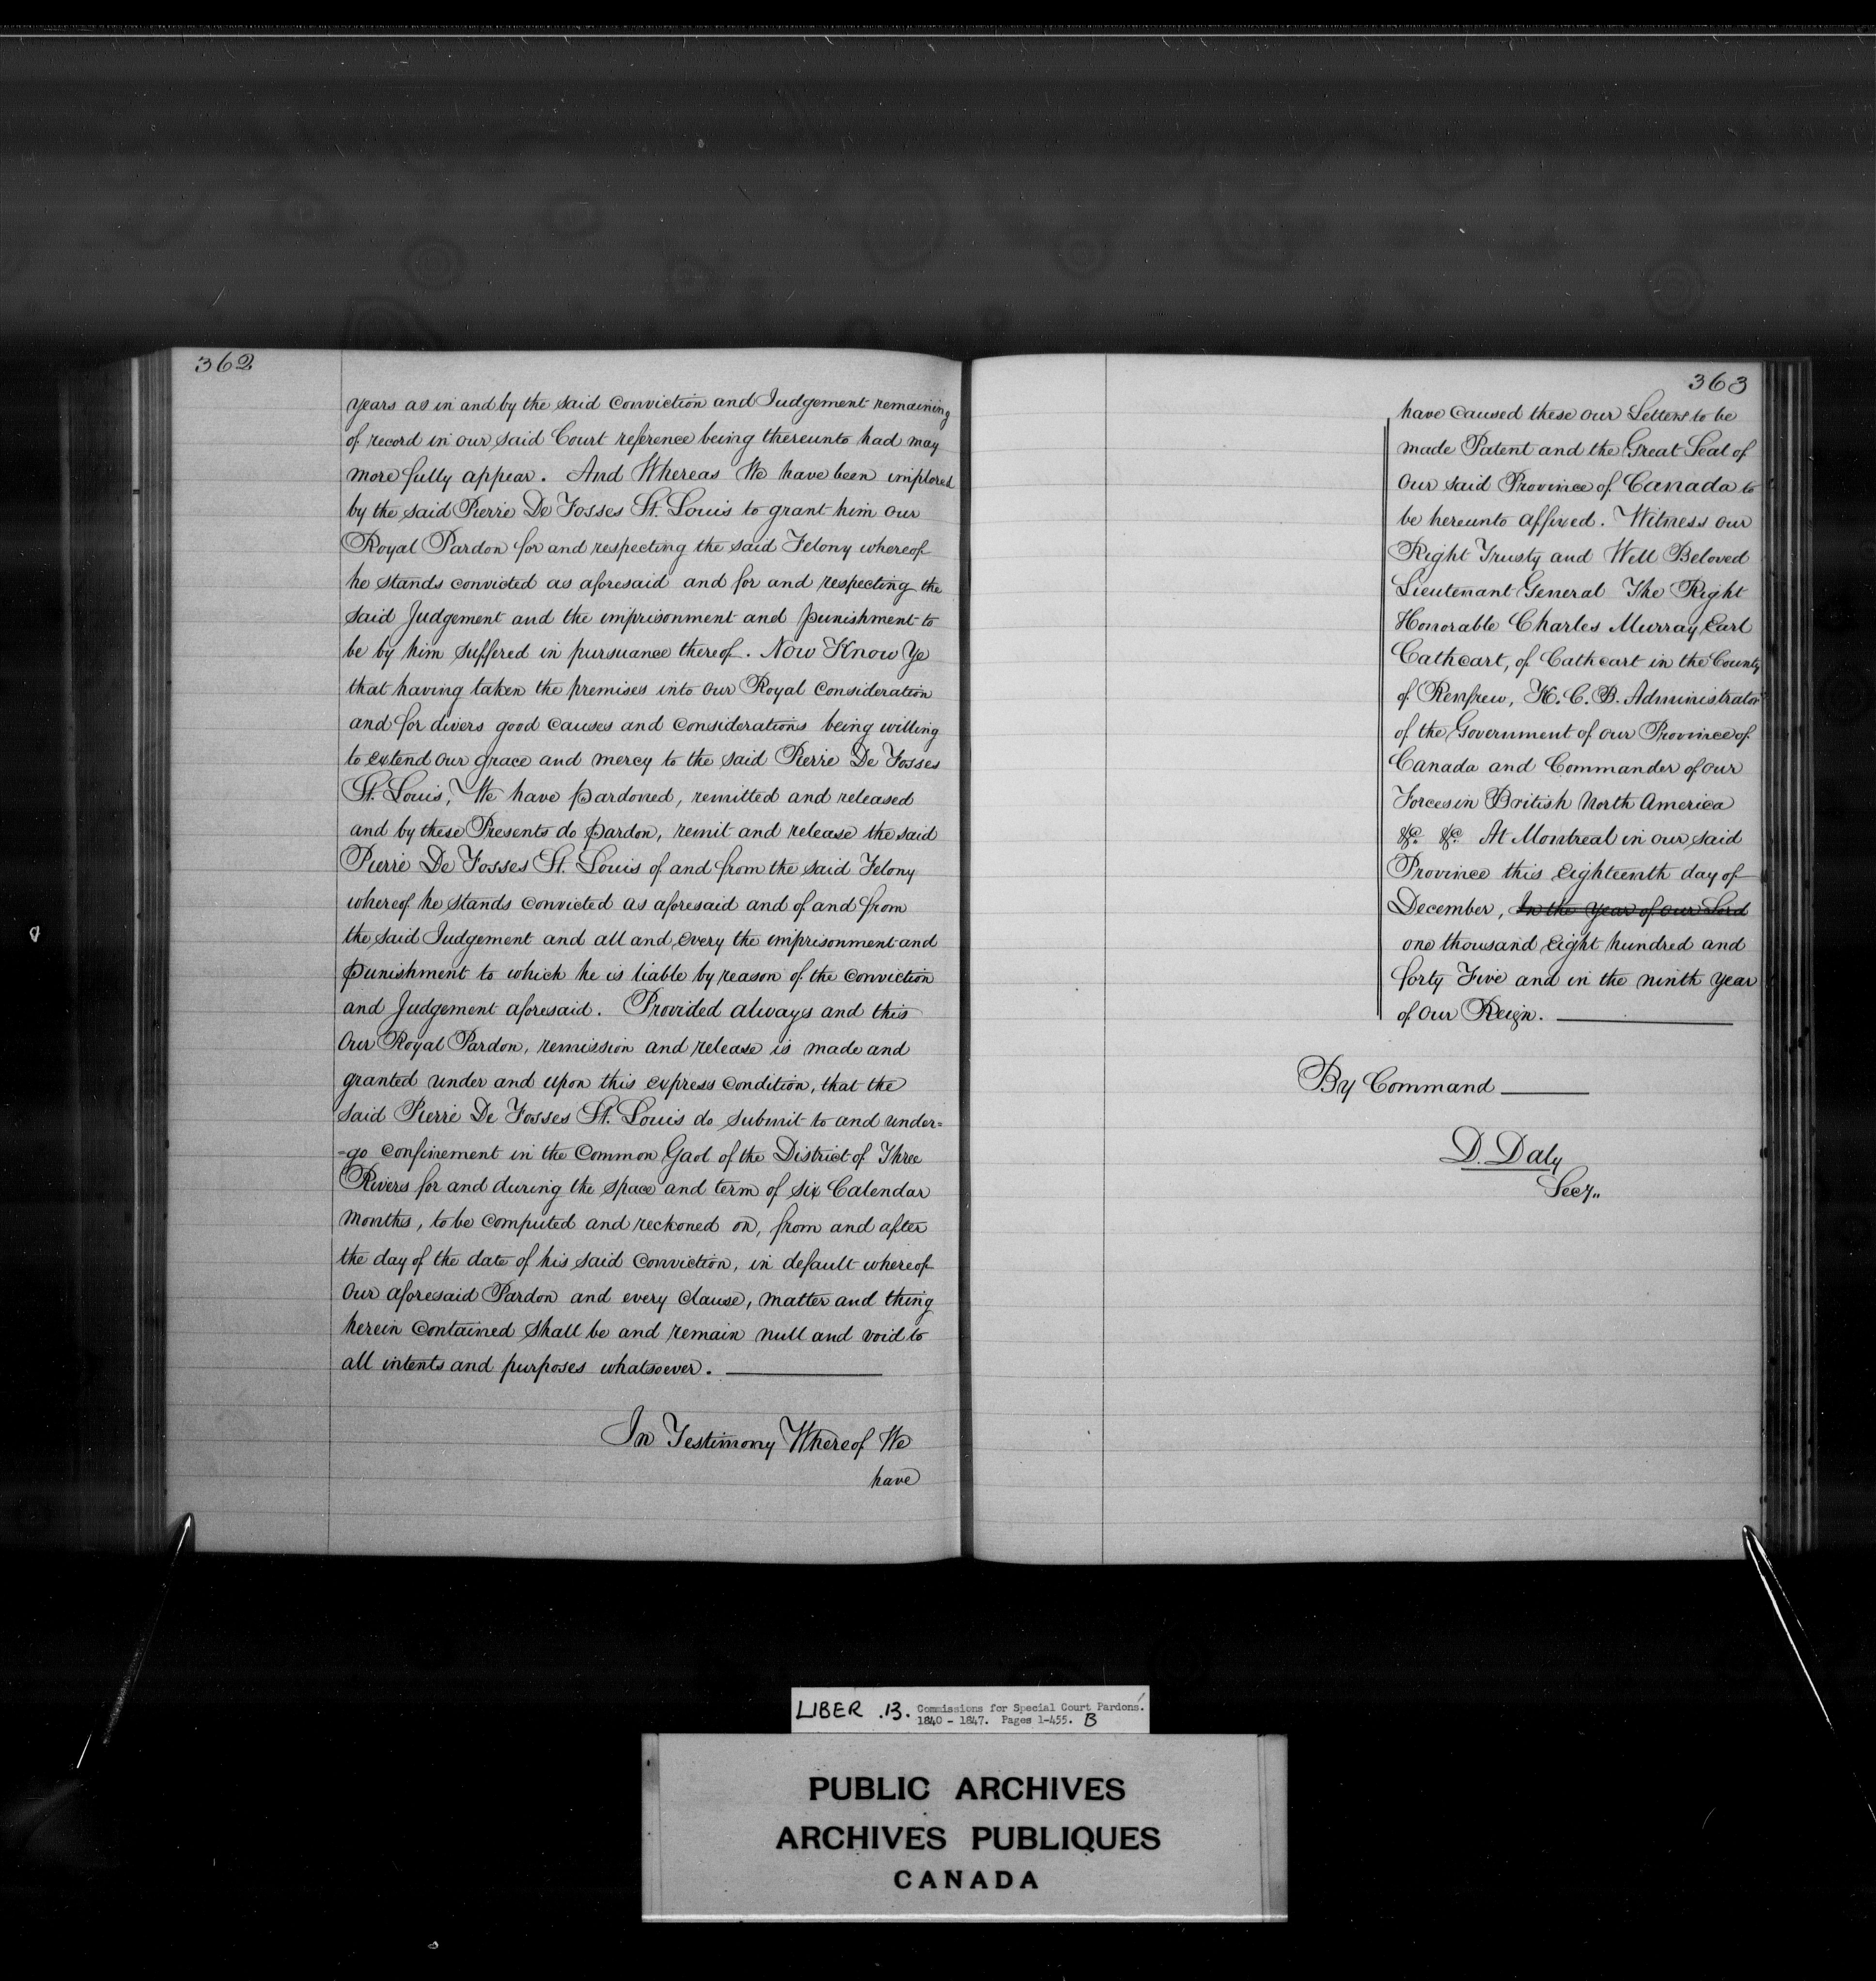 362
years as in and by the said Conviction and Judgement remaining
of record in our said Court reference being thereunto had may
more fully appear. And Whereas We have been implored
by the said Pierre De Fosses St. Louis to grant him our
Royal Pardon for and respecting the said Felony whereof
he stands convicted as aforesaid and for and respecting the
said Judgement and the imprisonment and punishment to
be by him suffered in pursuance thereof. Now Know Ye
that having taken the premises into our Royal Consideration
and for divers good causes and considerations being willing
to extend our grace and mercy to the said Pierre De Fosses
St. Louis, We have pardoned, remitted and released
and by these Presents do pardon, remit and release the said
Pierre De Fosses St. Louis of and from the said Felony
whereof he stands convicted as aforesaid and of and from
the said Judgement and all and every the imprisonment and
punishment to which he is liable by reason of the conviction
and Judgement aforesaid. Provided always and this
Our Royal Pardon, remission and release is made and
granted under and upon this express condition, that the
said Pierre De Fosses St. Louis do submit to and under=
=go confinement in the Common Gaol of the District of Three
Rivers for and during the space and term of six Calendar
Months, to be computed and reckoned on, from and after
the day of the date of his said conviction, in default whereof
Our aforesaid Pardon and every clause, matter and thing
herein contained shall be and remain null and void to
all intents and purposes whatsoever.
In Testimony Whereof We
have
363
have caused these our Letters to be
made Patent and the Great Seal of
Our said Province of Canada to
be hereunto affixed. Witness our
Right Trusty and Well Beloved
Lieutenant General The Right
Honorable Charles Murray Earl
Cathcart, of Cathcart in the County
of Renfrew, K.C.B. Administrator
of the Government of our Province of
Canada and Commander of our
Forces in British North America
&c. &c. At Montreal in our said
Province this Eighteenth day of
December, In the Year of our Lord
one thousand Eight hundred and
forty Five and in the ninth Year
of Our Reign.
By Command
D. Daly
Secy..
LIBER .B. Commissions for Special Court Pardons.
1840 - 1847. Pages 1-455. B
PUBLIC ARCHIVES
ARCHIVES PUBLIQUES
CANADA